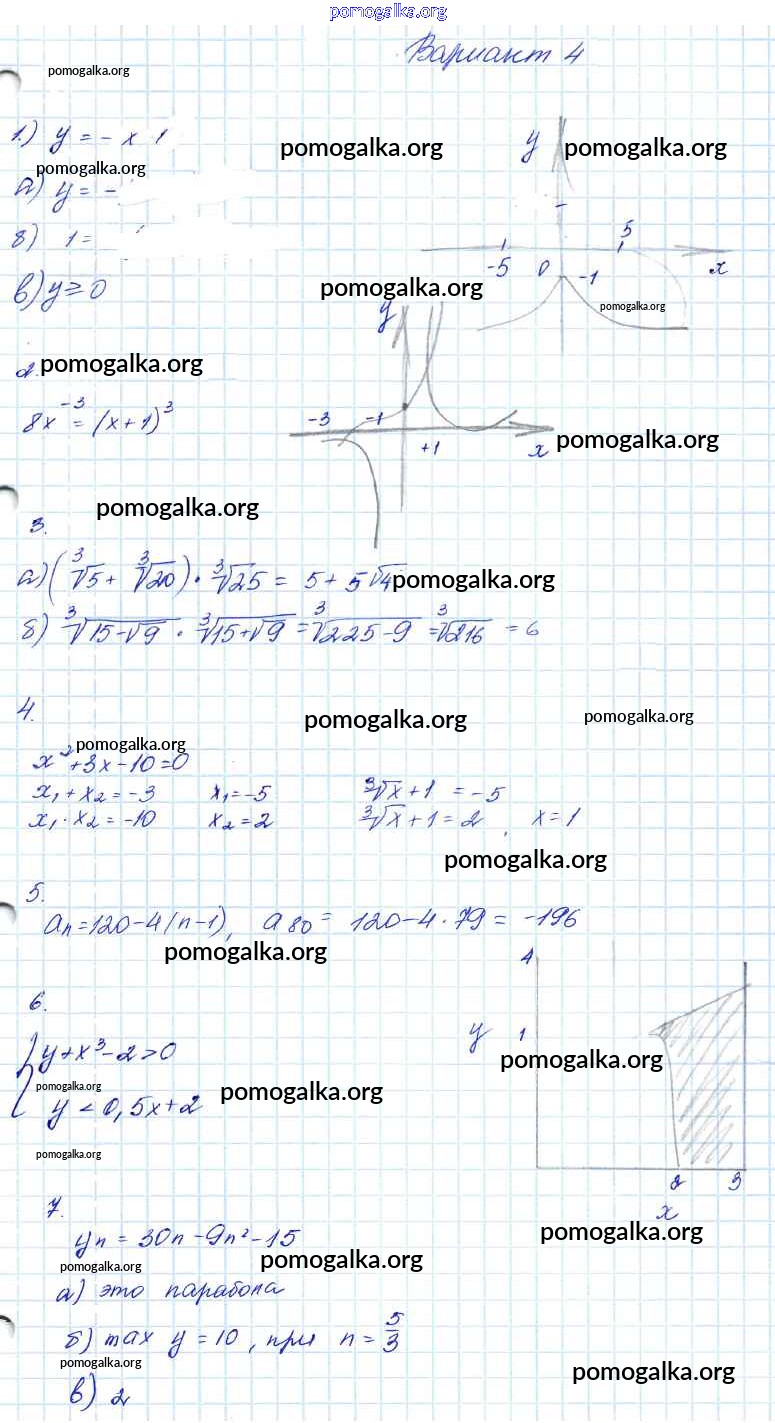 pomogalka.org
Вариант 4
pomogalka.org
1.) y = - x 1
pomogalka.org
y
pomogalka.org
pomogalka.org
а) y = -
б) 1 =
-5 0 -1 5 x
в) y ≥ 0
pomogalka.org
pomogalka.org
y
2.
pomogalka.org
8x⁻³ = (x+1)³
-3 -1 +1 x
pomogalka.org
pomogalka.org
3.
а) (∛5 + ∛20) · ∛25 = 5 + 5∛4
pomogalka.org
б) ∛(15-√9) · ∛(15+√9) = ∛(225-9) = ∛216 = 6
4.
pomogalka.org
pomogalka.org
pomogalka.org
x²+3x-10=0
x₁+x₂=-3 x₁=-5 ∛x+1 = -5
x₁·x₂=-10 x₂=2 ∛x+1=2, x=1
pomogalka.org
5.
aₙ=120-4(n-1), a₈₀= 120-4·79= -196
pomogalka.org
6.
4
y 1
2 3
x
y+x³-2>0
pomogalka.org
pomogalka.org
pomogalka.org
y<0,5x+2
pomogalka.org
7.
yn = 30n-9n²-15
pomogalka.org
pomogalka.org
pomogalka.org
а) это парабола
б) max y=10, при n=5/3
pomogalka.org
pomogalka.org
в) 2